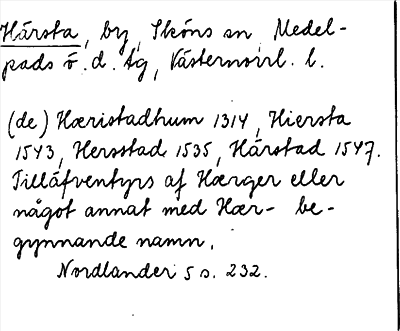 Härsta, by, Sköns sn, Medel-
pads ö. d. tg, Västernorrl. l.
(de) Hæristadhum 1314, Hiersta
1543, Hersstad 1535, Härstad 1547.
Tilläfventyrs af Hærger eller
något annat med Hær- be-
gynnande namn.
Nordlander 5 s. 232.